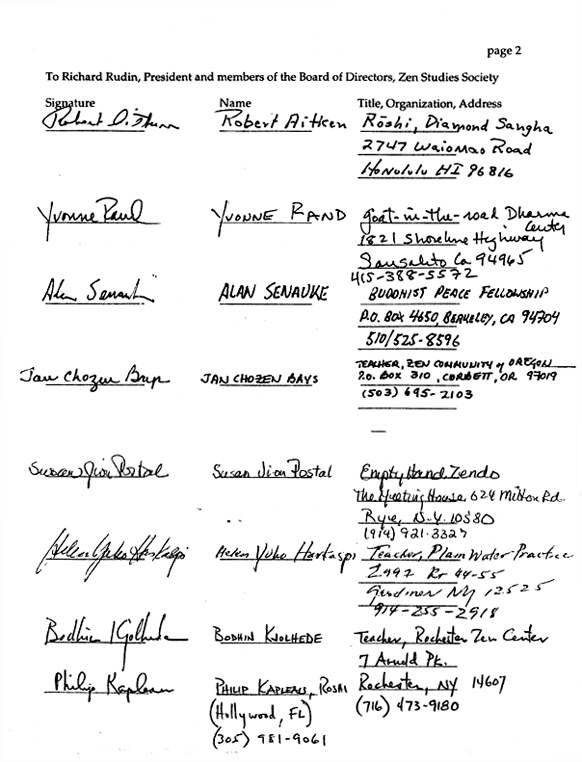 page 2
To Richard Rudin, President and members of the Board of Directors, Zen Studies Society
Signature Name Title, Organization, Address
Robert Aitken Rōshi, Diamond Sangha
2747 Waiomao Road
Honolulu HI 96816
Yvonne Rand YVONNE RAND Goat-in-the-road Dharma
Center
1821 Shoreline Highway
Sausalito Ca 94965
415-388-5572
Alan Senauke ALAN SENAUKE BUDDHIST PEACE FELLOWSHIP
P.O. BOX 4650, BERKELEY, CA 94704
510/525-8596
Jan Chozen Bays JAN CHOZEN BAYS TEACHER, ZEN COMMUNITY of OREGON
P.O. BOX 310, CORBETT, OR 97019
(503) 695-2103
Susan Jion Postal Susan Jion Postal Empty Hand Zendo
The Meeting House, 624 Milton Rd.
Rye, N.Y. 10580
(914) 921-3327
Helen Yuho Harkaspi Helen Yuho Harkaspi Teacher, Plain Water Practice
2992 Rt 44-55
Gardiner NY 12525
914-255-2918
Bodhin Kjolhede BODHIN KJOLHEDE Teacher, Rochester Zen Center
7 Arnold Pk.
Philip Kapleau PHILIP KAPLEAU, ROSHI Rochester, NY 14607
(Hollywood, FL) (716) 473-9180
(305) 981-9061